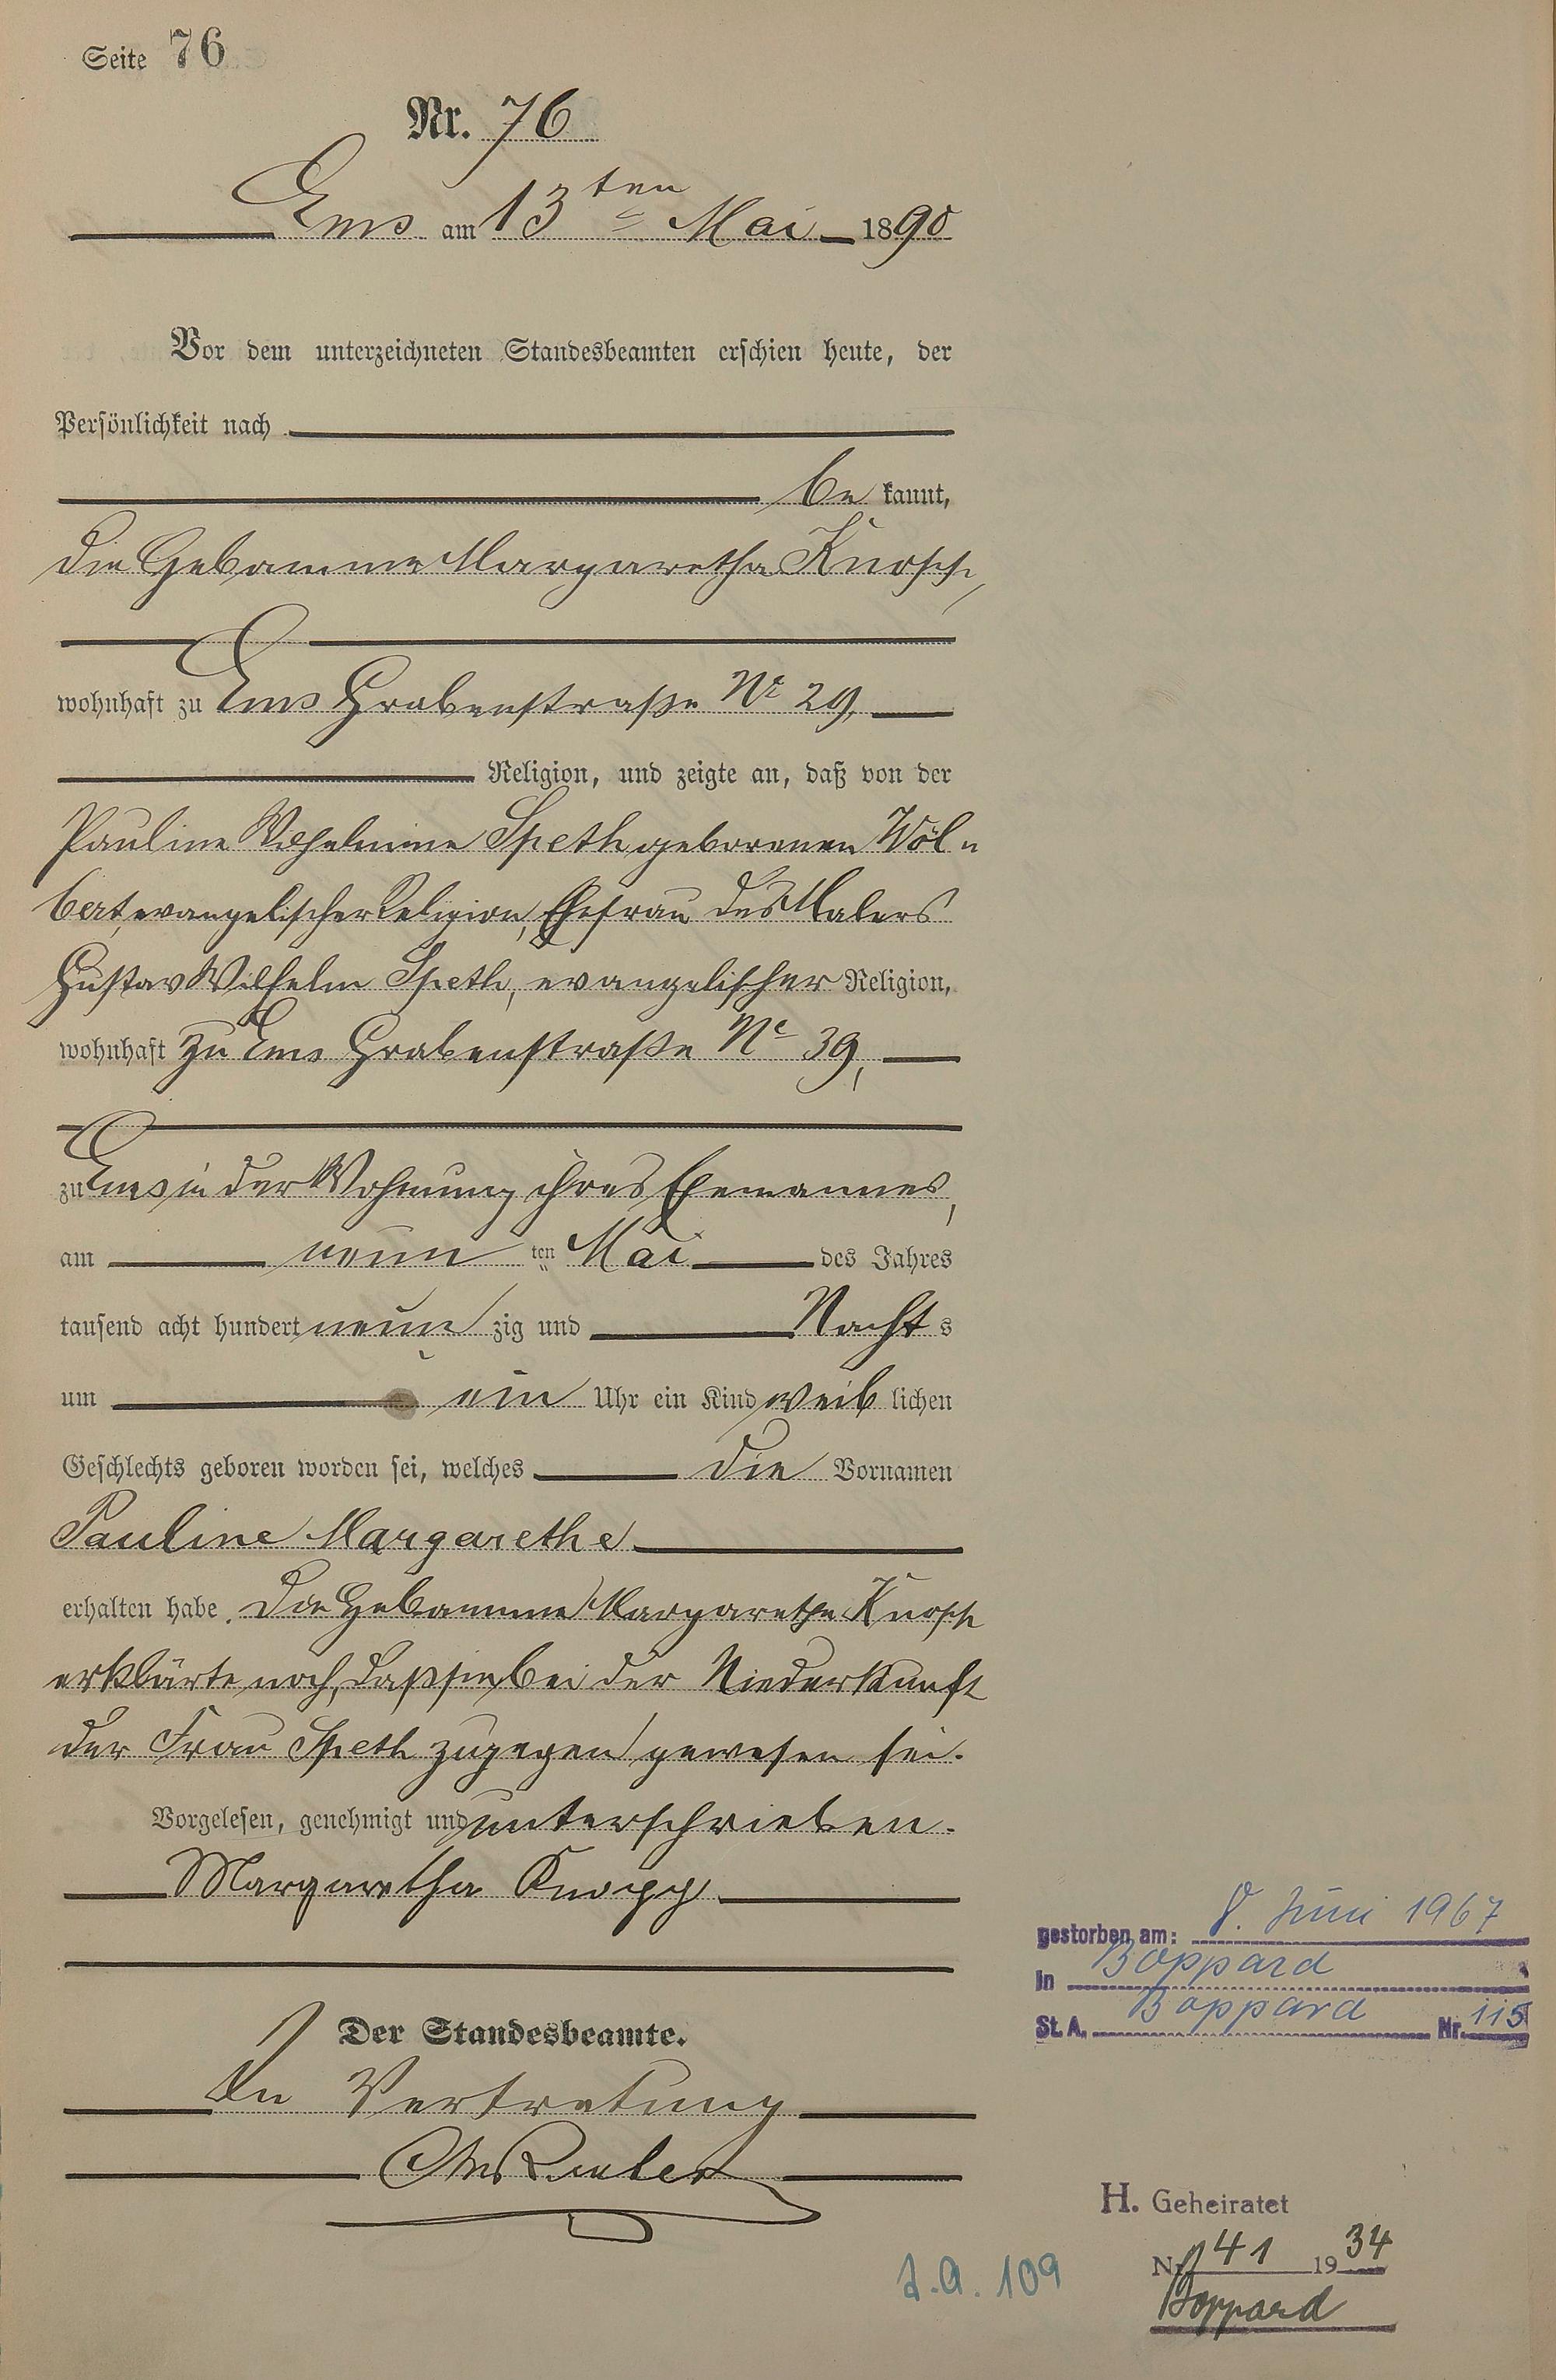 Seite 76
Nr. 76
Ems am 13ten Mai 1890
Vor dem unterzeichneten Standesbeamten erschien heute, der
Persönlichkeit nach
be kannt,
die Hebamme Margaretha Knopp,
wohnhaft zu Ems Grabenstraße Nr 29,
Religion, und zeigte an, daß von der
Pauline Wilhelmine Speth geborenen Wöl-
bert, evangelischer Religion, Ehefrau des Malers
Gustav Wilhelm Speth, evangelischer Religion,
wohnhaft zu Ems Grabenstraße No 39,
zu Ems in der Wohnung ihres Ehemannes,
am neun ten Mai des Jahres
tausend acht hundert neun zig und Nacht s
um ein Uhr ein Kind weib lichen
Geschlechts geboren worden sei, welches die Vornamen
Pauline Margarethe
erhalten habe. Die Hebamme Margaretha Knopp
erklärte noch, daß sie bei der Niederkunft
der Frau Speth zugegen gewesen sei.
Vorgelesen, genehmigt und unterschrieben.
Margaretha Knopp
Der Standesbeamte.
In Vertretung
gestorben am: 8. Juni 1967
in Boppard
St. A. Boppard Nr. 115
H. Geheiratet
Nr. 41 1934
Boppard
109